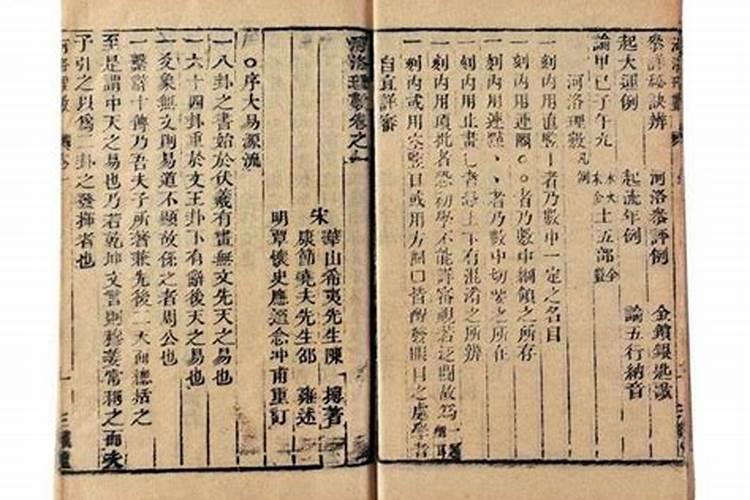 參評秘訣辨 河洛參評例 金鎖銀匙歌
起大運例 起流年例 論五行納音
論甲己子午九
河洛理數凡例
一刻內用直豎丨者乃數中一定之名目
一刻內用連圈○○者乃數中綱領之所存
一刻內用連點、、者乃數中切要之所在
一刻內用止畫乚者每上下有混淆之所辨
一刻內用頂批者恐初學不能詳審視若泛聞故為
一刻內或用空豎目或用方圈口皆醒發眼目之處學者
自宜詳審
河洛理數卷之
宋 華山希夷先生陳 摶著
康節堯夫先生邵 雍述
明 覃懷史應選念冲甫重訂
○序大易源流
一八卦之書始於伏羲有畫無文先天之易也
一六十四卦重於文王卦下有辭後天之易也
一爻象無文則易道不顯故係之者周公也
一繫辭十傳乃吾夫子所著兼先後二天而總括之
至是謂中天之易也乃若乾坤文言則穆姜常稱之而夫
子引之以為二卦之發揮者也